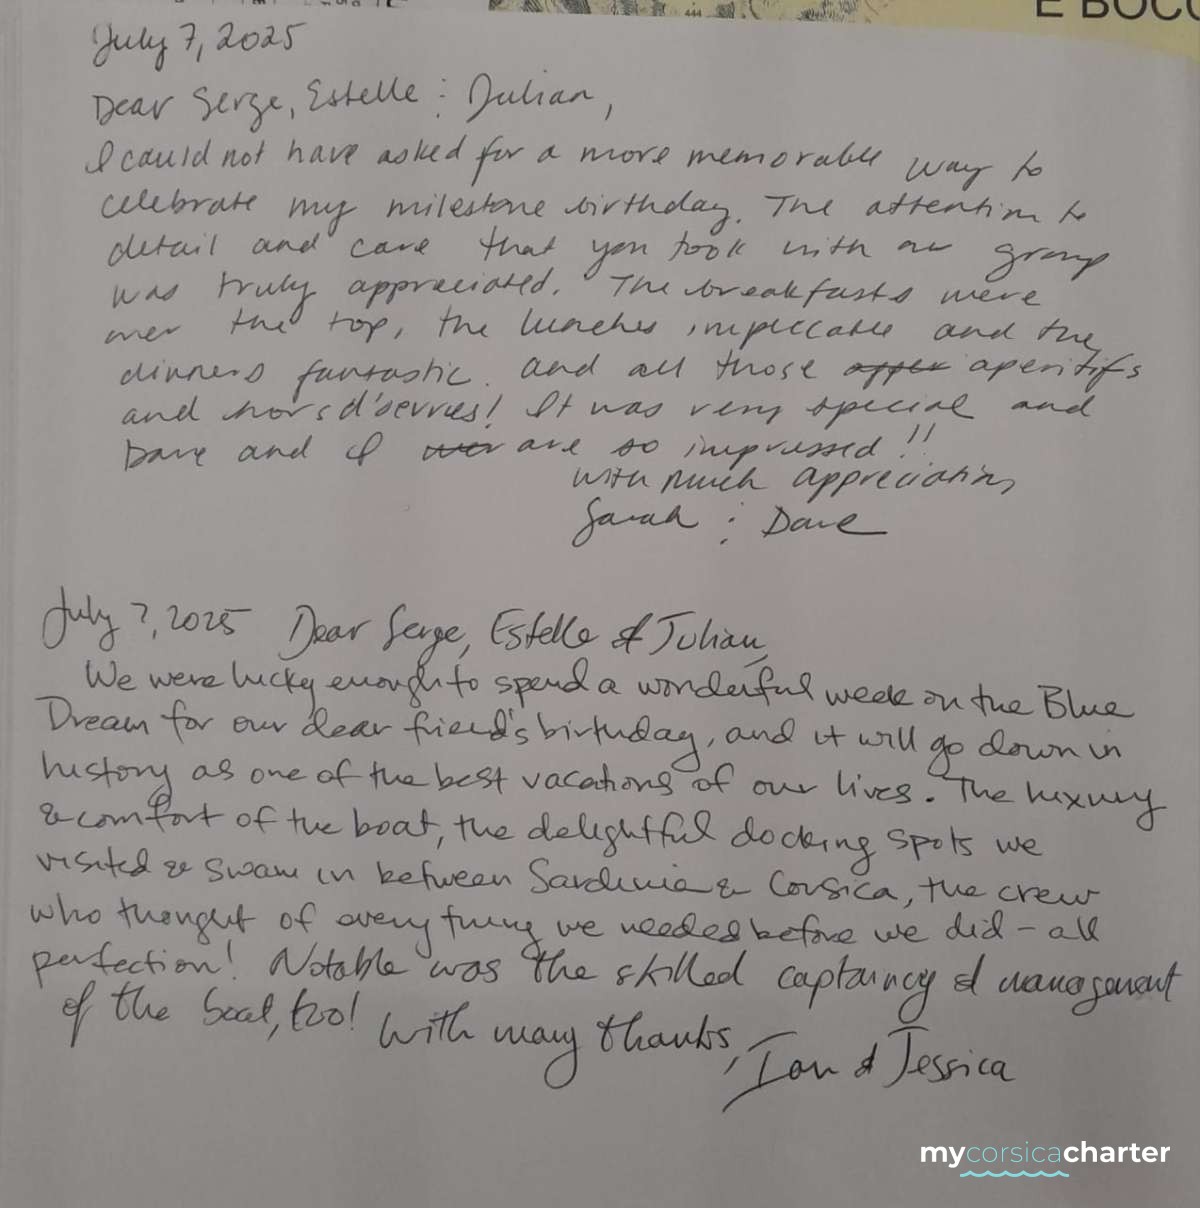 E BOCC
July 7, 2025
Dear Serge, Estelle : Julian,
I could not have asked for a more memorable way to
celebrate my milestone birthday. The attention to
detail and care that you took with our group
was truly appreciated. The breakfasts were
over the top, the lunches impeccable and the
dinners fantastic. and all those aperitifs
and hors d'oerves! It was very special and
Dave and I are so impressed!!
with much appreciation,
Sarah : Dave
July 7, 2025 Dear Serge, Estelle & Julian,
We were lucky enough to spend a wonderful week on the Blue
Dream for our dear friend's birthday, and it will go down in
history as one of the best vacations of our lives. The luxury
& comfort of the boat, the delightful docking spots we
visited & swam in between Sardinia & Corsica, the crew
who thought of everything we needed before we did - all
perfection! Notable was the skilled captaincy & management
of the boat, too! With many thanks,
Ian & Jessica
mycorsicacharter